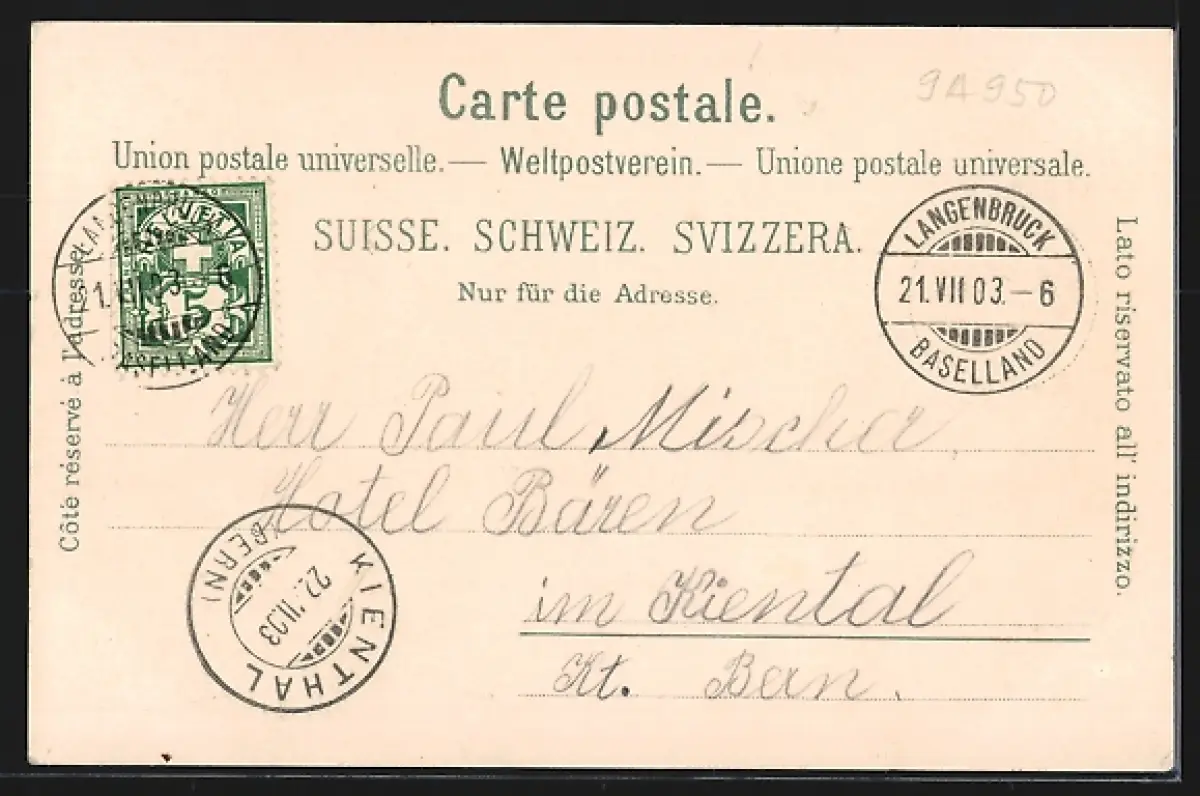 9A950
Carte postale.
Union postale universelle. — Weltpostverein. — Unione postale universale.
SUISSE. SCHWEIZ. SVIZZERA.
Nur für die Adresse.
HELVETIA
5
BASELLAND
LANGENBRUCK
21.VII 03.–6
BASELLAND
Côté réservé à l'adresse.
Lato riservato all' indirizzo.
Herr Paul Mischer,
Hotel Bären
im Kiental
Kt. Bern.
KIENTHAL
(BERN)
22.VII.03